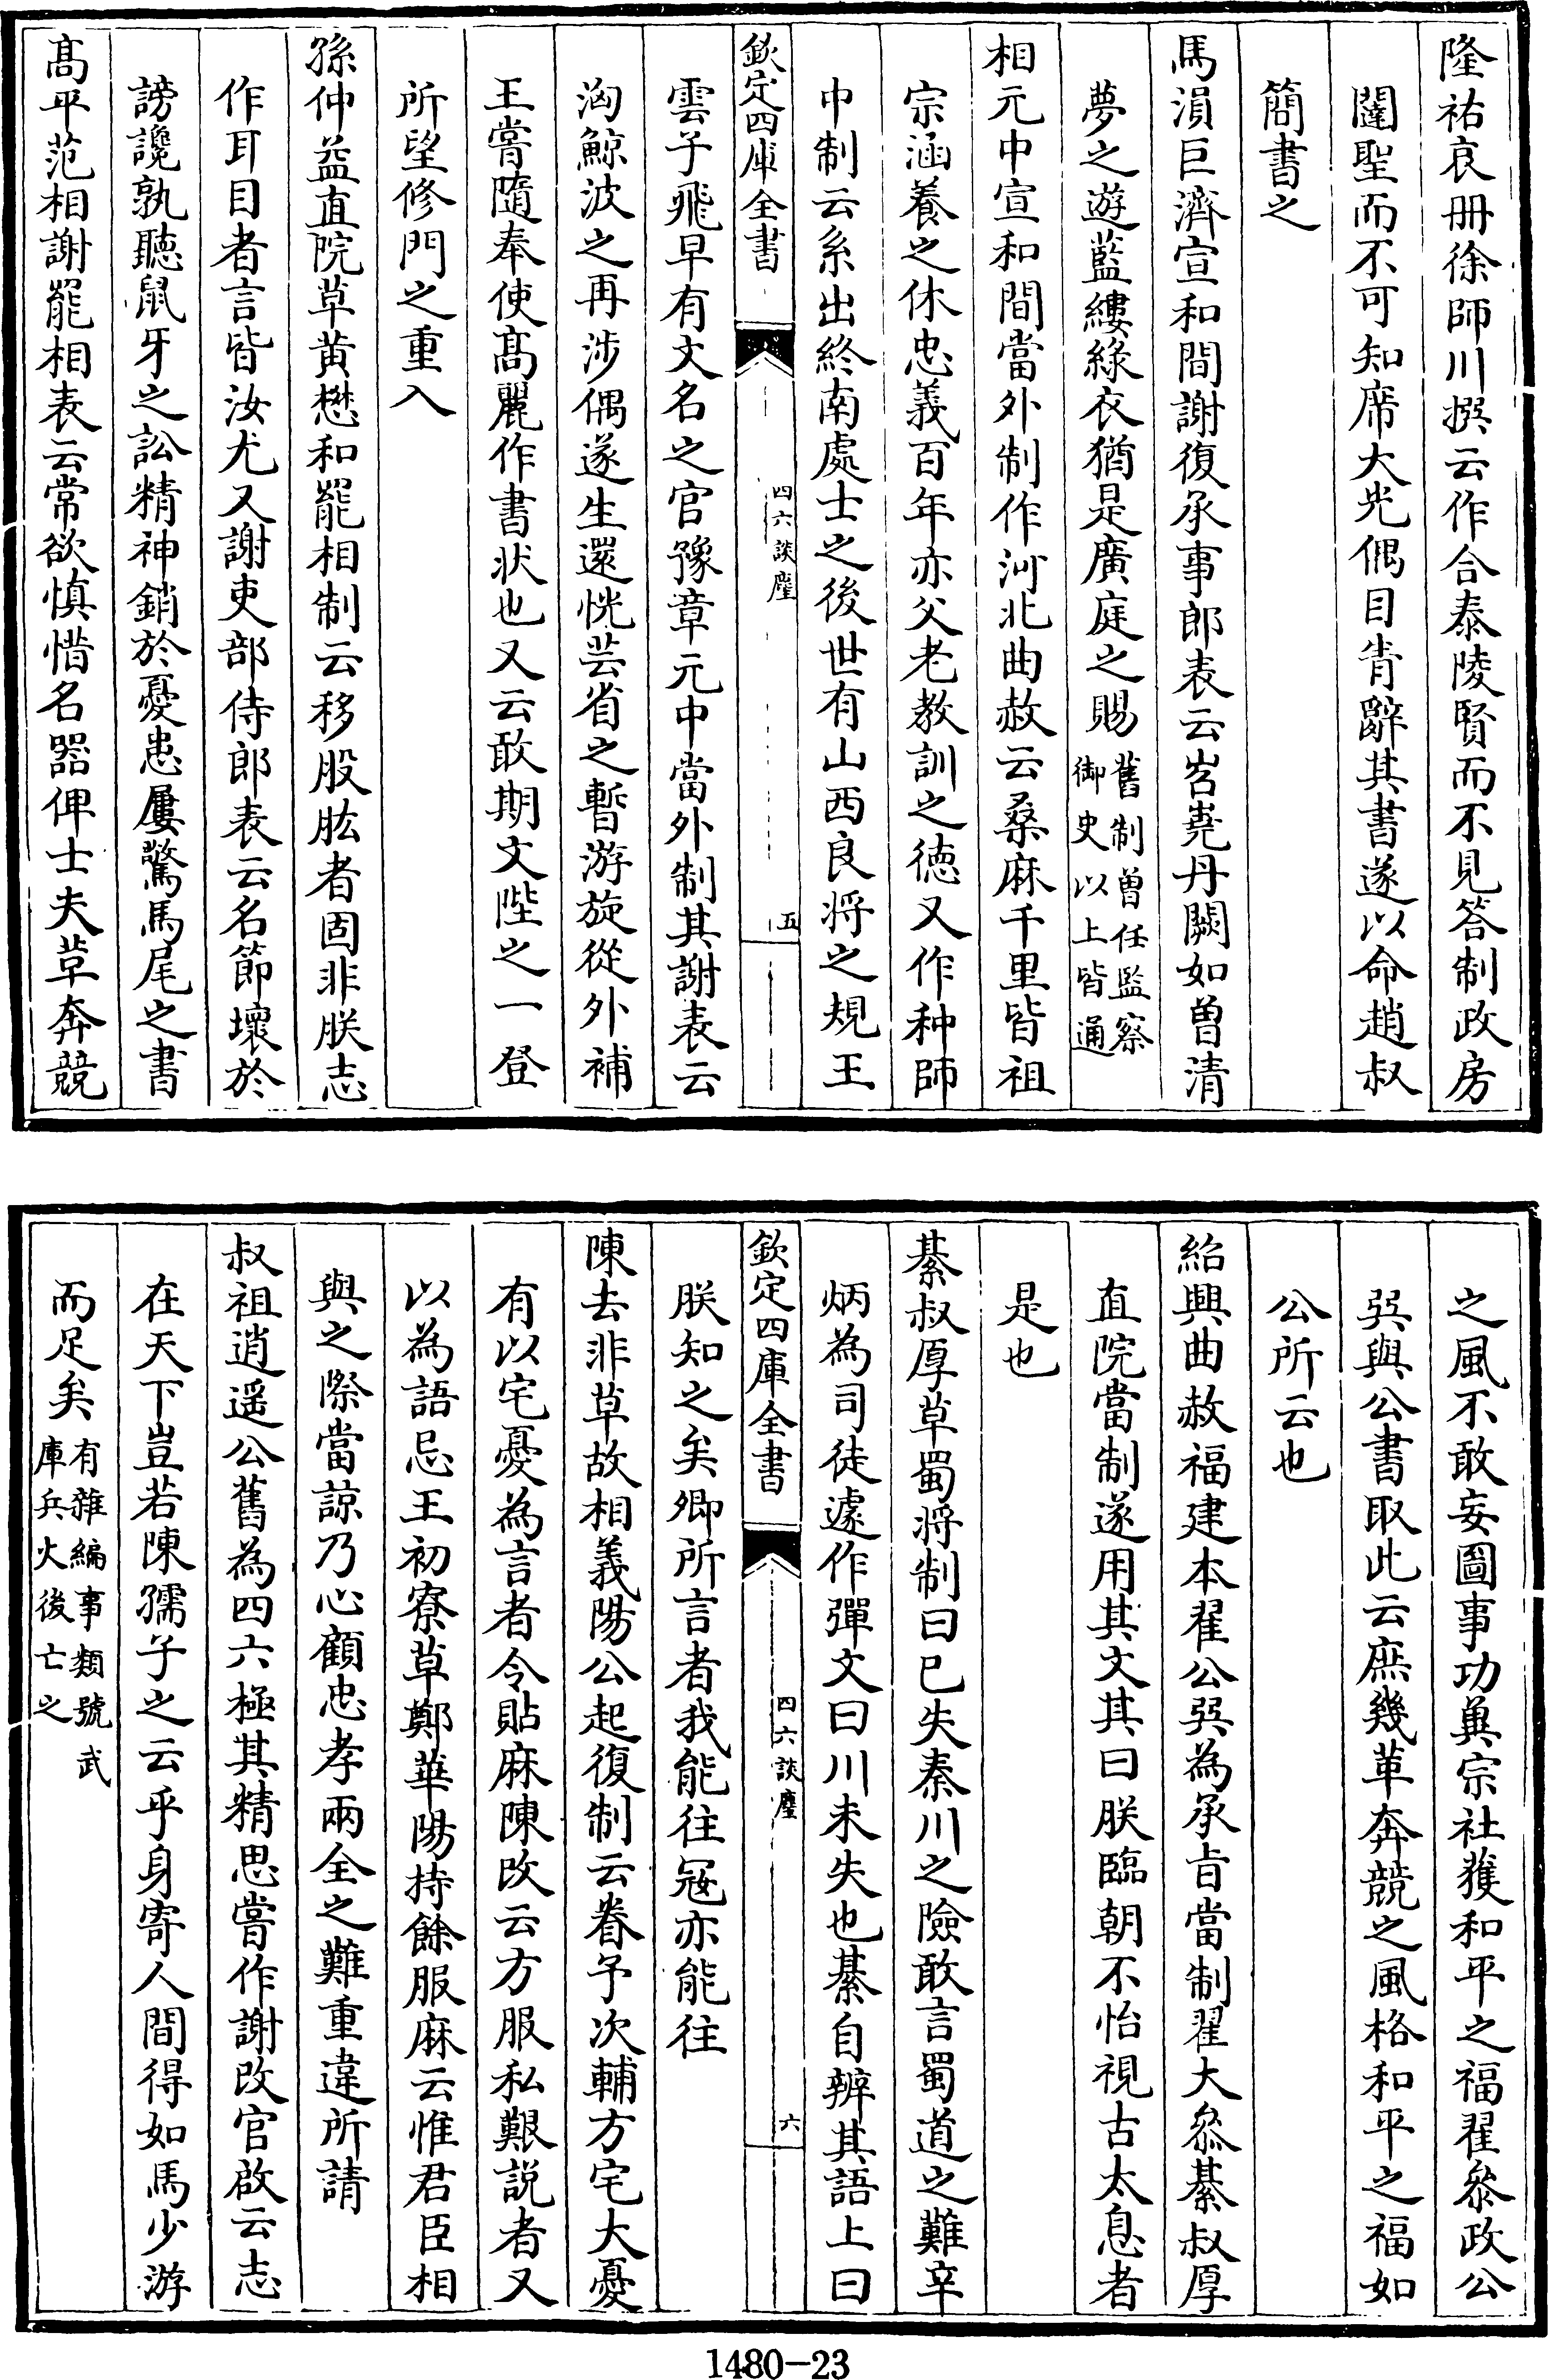 隆祐哀册徐師川撰云作合泰陵賢而不見答制政房
闥聖而不可知席大光偶目青辭其書遂以命趙叔
簡書之
馬涓巨濟宣和間謝復承事郎表云岧嶤丹闕如曽清
夢之遊藍縷緑衣猶是廣庭之賜舊制曽任監察御史以上皆通
相元中宣和間當外制作河北曲赦云桑麻千里皆祖
宗涵養之休忠義百年亦父老教訓之徳又作种師
中制云系出終南處士之後世有山西良将之規王
欽定四庫全書
四六談麈
五
雲子飛早有文名之官豫章元中當外制其謝表云
洶鯨波之再涉偶遂生還恍芸省之暫游旋從外補
王嘗隨奉使髙麗作書状也又云敢期文陛之一登
所望修門之重入
孫仲益直院草黄懋和罷相制云移股肱者固非朕志
作耳目者言皆汝尤又謝吏部侍郎表云名節壞於
謗讒孰聽鼠牙之訟精神銷於憂患屢驚馬尾之書
髙平范相謝罷相表云常欲慎惜名器俾士夫草奔競
之風不敢妄圖事功兾宗社獲和平之福翟叅政公
㢲與公書取此云庶幾革奔競之風格和平之福如
公所云也
紹興曲赦福建本翟公㢲為承㫖當制翟大叅綦叔厚
直院當制遂用其文其曰朕臨朝不怡視古太息者
是也
綦叔厚草蜀将制曰已失秦川之險敢言蜀道之難辛
炳為司徒遽作彈文曰川未失也綦自辨其語上曰
欽定四庫全書
四六談麈
六
朕知之矣卿所言者我能往冦亦能往
陳去非草故相義陽公起復制云眷予次輔方宅大憂
有以宅憂為言者令貼麻陳改云方服私艱説者又
以為語忌王初寮草鄭華陽持餘服麻云惟君臣相
與之際當諒乃心顧忠孝兩全之難重違所請
叔祖逍遥公舊為四六極其精思嘗作謝改官啟云志
在天下豈若陳孺子之云乎身寄人間得如馬少游
而足矣有雜編事類號武庫兵火後亡之
1480-23